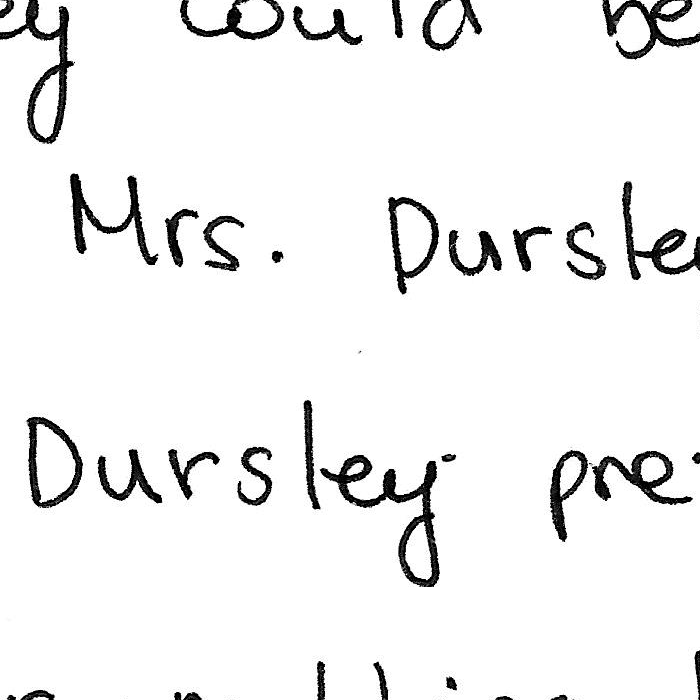 ey could be
Mrs. Dursle
Dursley pre